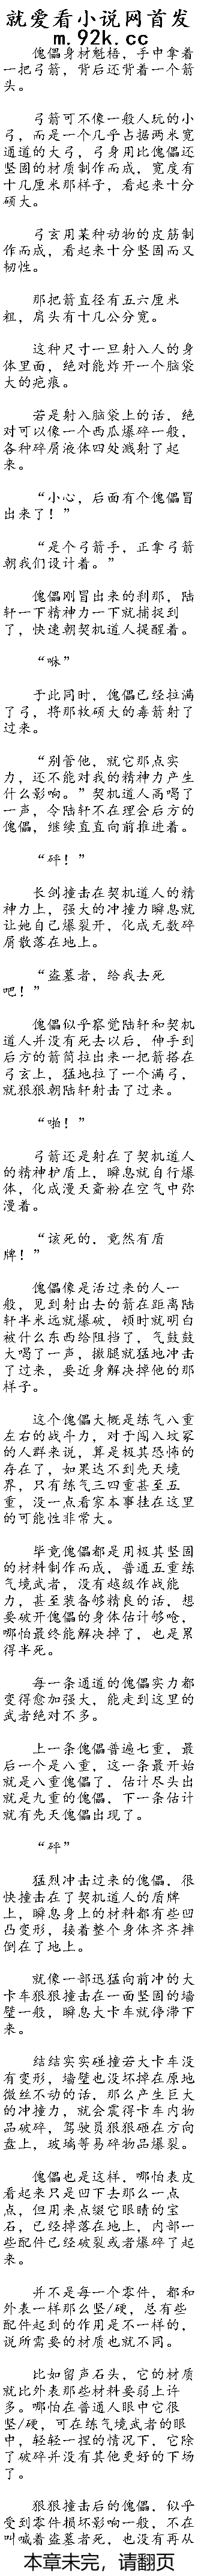 就爱看小说网首发
m.92k.cc
傀儡身材魁梧，手中拿着
一把弓箭，背后还背着一个箭
头。
弓箭可不像一般人玩的小
弓，而是一个几乎占据两米宽
通道的大弓，弓身用比傀儡还
坚固的材质制作而成，宽度有
十几厘米那样子，看起来十分
硕大。
弓玄用某种动物的皮筋制
作而成，看起来十分坚固而又
韧性。
那把箭直径有五六厘米
粗，肩头有十几公分宽。
这种尺寸一旦射入人的身
体里面，绝对能炸开一个脑袋
大的疤痕。
若是射入脑袋上的话，绝
对可以像一个西瓜爆碎一般，
各种碎屑液体四处溅射了起
来。
“小心，后面有个傀儡冒
出来了！”
“是个弓箭手，正拿弓箭
朝我们设计着。”
傀儡刚冒出来的刹那，陆
轩一下精神力一下就捕捉到
了，快速朝契机道人提醒着。
“咻”
于此同时，傀儡已经拉满
了弓，将那枚硕大的毒箭射了
过来。
“别管他，就它那点实
力，还不能对我的精神力产生
什么影响。”契机道人高喝了
一声，令陆轩不在理会后方的
傀儡，继续直直向前推进着。
“砰！”
长剑撞击在契机道人的精
神力上，强大的冲撞力瞬息就
让她自己爆裂开，化成无数碎
屑散落在地上。
“盗墓者，给我去死
吧！”
傀儡似乎察觉陆轩和契机
道人并没有死去以后，伸手到
后方的箭筒拉出来一把箭搭在
弓玄上，猛地拉了一个满弓，
就狠狠朝陆轩射击了过来。
“啪！”
弓箭还是射在了契机道人
的精神护盾上，瞬息就自行爆
体，化成漫天齑粉在空气中弥
漫着。
“该死的，竟然有盾
牌！”
傀儡像是活过来的人一
般，见到射出去的箭在距离陆
轩半米远就爆破，顿时就明白
被什么东西给阻挡了，气鼓鼓
大喝了一声，撒腿就猛地冲击
了过来，要近身解决掉他的那
样子。
这个傀儡大概是练气八重
左右的战斗力，对于闯入坟冢
的人群来说，算是极其恐怖的
存在了，如果达不到先天境
界，只有练气三四重甚至五
重，没一点看家本事挂在这里
的可能性非常大。
毕竟傀儡都是用极其坚固
的材料制作而成，普通五重练
气境武者，没有越级作战能
力，甚至装备够精良的话，想
要破开傀儡的身体估计够呛，
哪怕最终能解决掉了，也是累
得半死。
每一条通道的傀儡实力都
变得愈加强大，能走到这里的
武者绝对不多。
上一条傀儡普遍七重，最
后一个是八重，这一条最开始
就是八重傀儡了，估计尽头出
就是九重的傀儡，下一条估计
就有先天傀儡出现了。
“砰”
猛烈冲击过来的傀儡，很
快撞击在了契机道人的盾牌
上，瞬息身上的材料都有些凹
凸变形，接着整个身体齐齐摔
倒在了地上。
就像一部迅猛向前冲的大
卡车狠狠撞击在一面坚固的墙
壁一般，瞬息大卡车就停滞下
来。
结结实实碰撞若大卡车没
有变形，墙壁也没坏掉在原地
微丝不动的话，那么产生巨大
的冲撞力，就会震得卡车内物
品破碎，驾驶员狠狠砸在方向
盘上，玻璃等易碎物品爆裂。
傀儡也是这样，哪怕表皮
看起来只是凹下去那么一点
点，但用来点缀它眼睛的宝
石，已经掉落在地上，内部一
些配件已经破裂或者爆碎了起
来。
并不是每一个零件，都和
外表一样那么坚/硬，总有些
配件起到的作用是不一样的，
说所需要的材质也就不同。
比如留声石头，它的材质
就比外表那些材料要弱上许
多。哪怕在普通人眼中它很
坚/硬，可在练气境武者的眼
中，轻轻一捏的情况下，它除
了破碎并没有其他更好的下场
了。
狠狠撞击后的傀儡，似乎
受到零件损坏影响一般，不在
叫喊着盗墓者死，也没有再从
本章未完，请翻页